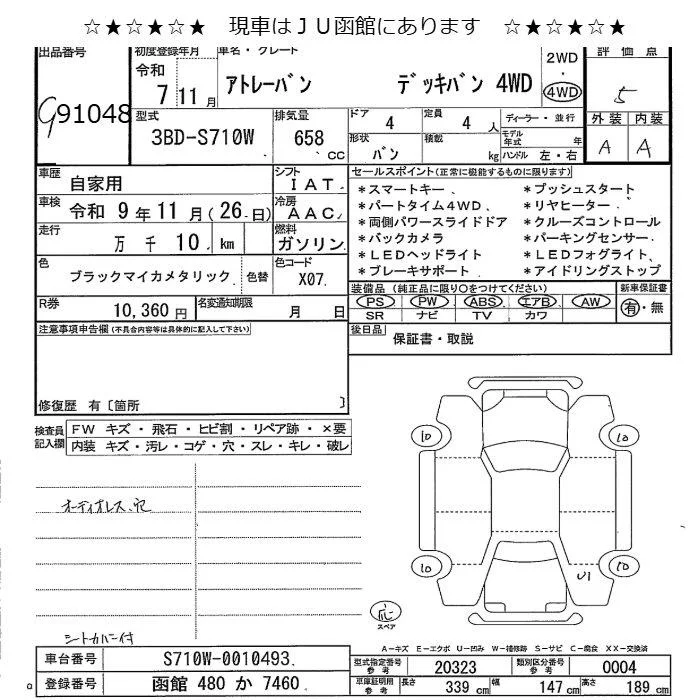 ☆★☆★☆★ 現車はＪＵ函館にあります ☆★☆★☆★
出品番号 初度登録年月 車名・グレード 2WD・4WD 評価点
G91048 令和 7 11月 アトレーバン デッキバン 4WD 5
型式 3BD-S710W 排気量 658 CC ドア 4 定員 4 人 ディーラー・並行 外装 内装
形状 バン 積載 kg モデル年式 年 ハンドル 左・右 A A
車歴 自家用 シフト IAT
車検 令和 9年 11月 (26日) 冷房 AAC
走行 万 千 10 km 燃料 ガソリン
色 ブラックマイカメタリック 色替 色コード X07
R券 10,360円 名変通知期限 月 日
セールスポイント(正常に機能するものに限ります)
＊スマートキー ＊プッシュスタート
＊パートタイム４ＷＤ ＊リヤヒーター
＊両側パワースライドドア ＊クルーズコントロール
＊バックカメラ ＊パーキングセンサー
＊ＬＥＤヘッドライト ＊ＬＥＤフォグライト
＊ブレーキサポート ＊アイドリングストップ
装備品(純正品に限り○をつけてください) 新車保証書
PS PW ABS エアB AW 有・無
SR ナビ TV カワ
後日品 保証書・取説
注意事項申告欄(不具合内容等は具体的に記入して下さい)
修復歴 有〔箇所 〕
検査員記入欄 FW キズ・飛石・ヒビ割・リペア跡・×要
内装 キズ・汚レ・コゲ・穴・スレ・キレ・破レ
オーディオレス穴
シートカバー付
10 10
10 10
U1
応
スペア
A-キズ E-エクボ U-凹み W-補修跡 S-サビ C-腐食 XX-交換済
車台番号 S710W-0010493
登録番号 函館 480 か 7460
型式指定番号 参考 20323 類別区分番号 参考 0004
車庫証明用 参考 長さ 339 cm 幅 147 cm 高さ 189 cm